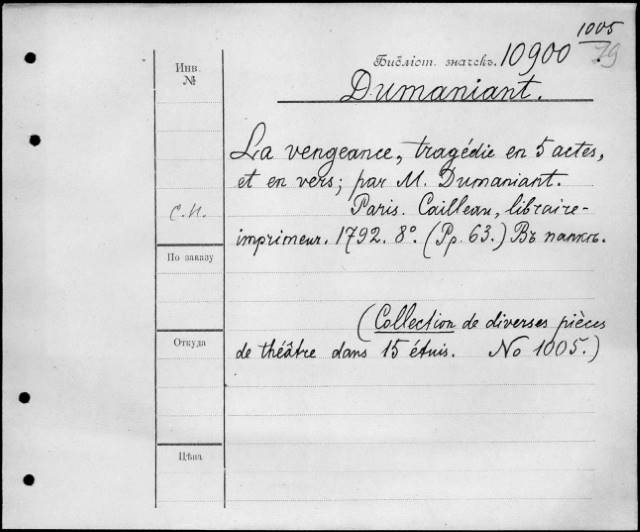 1005
Библіот. значекъ. 10900 79
Инв.
№
Dumaniant.
La vengeance, tragédie en 5 actes,
et en vers; par M. Dumaniant.
Paris. Cailleau, libraire-
С.П.
imprimeur. 1792. 8°. (Pp. 63.) Въ папкѣ.
По заказу
(Collection de diverses pièces
Откуда
de théâtre dans 15 étuis. No 1005.)
Цѣна